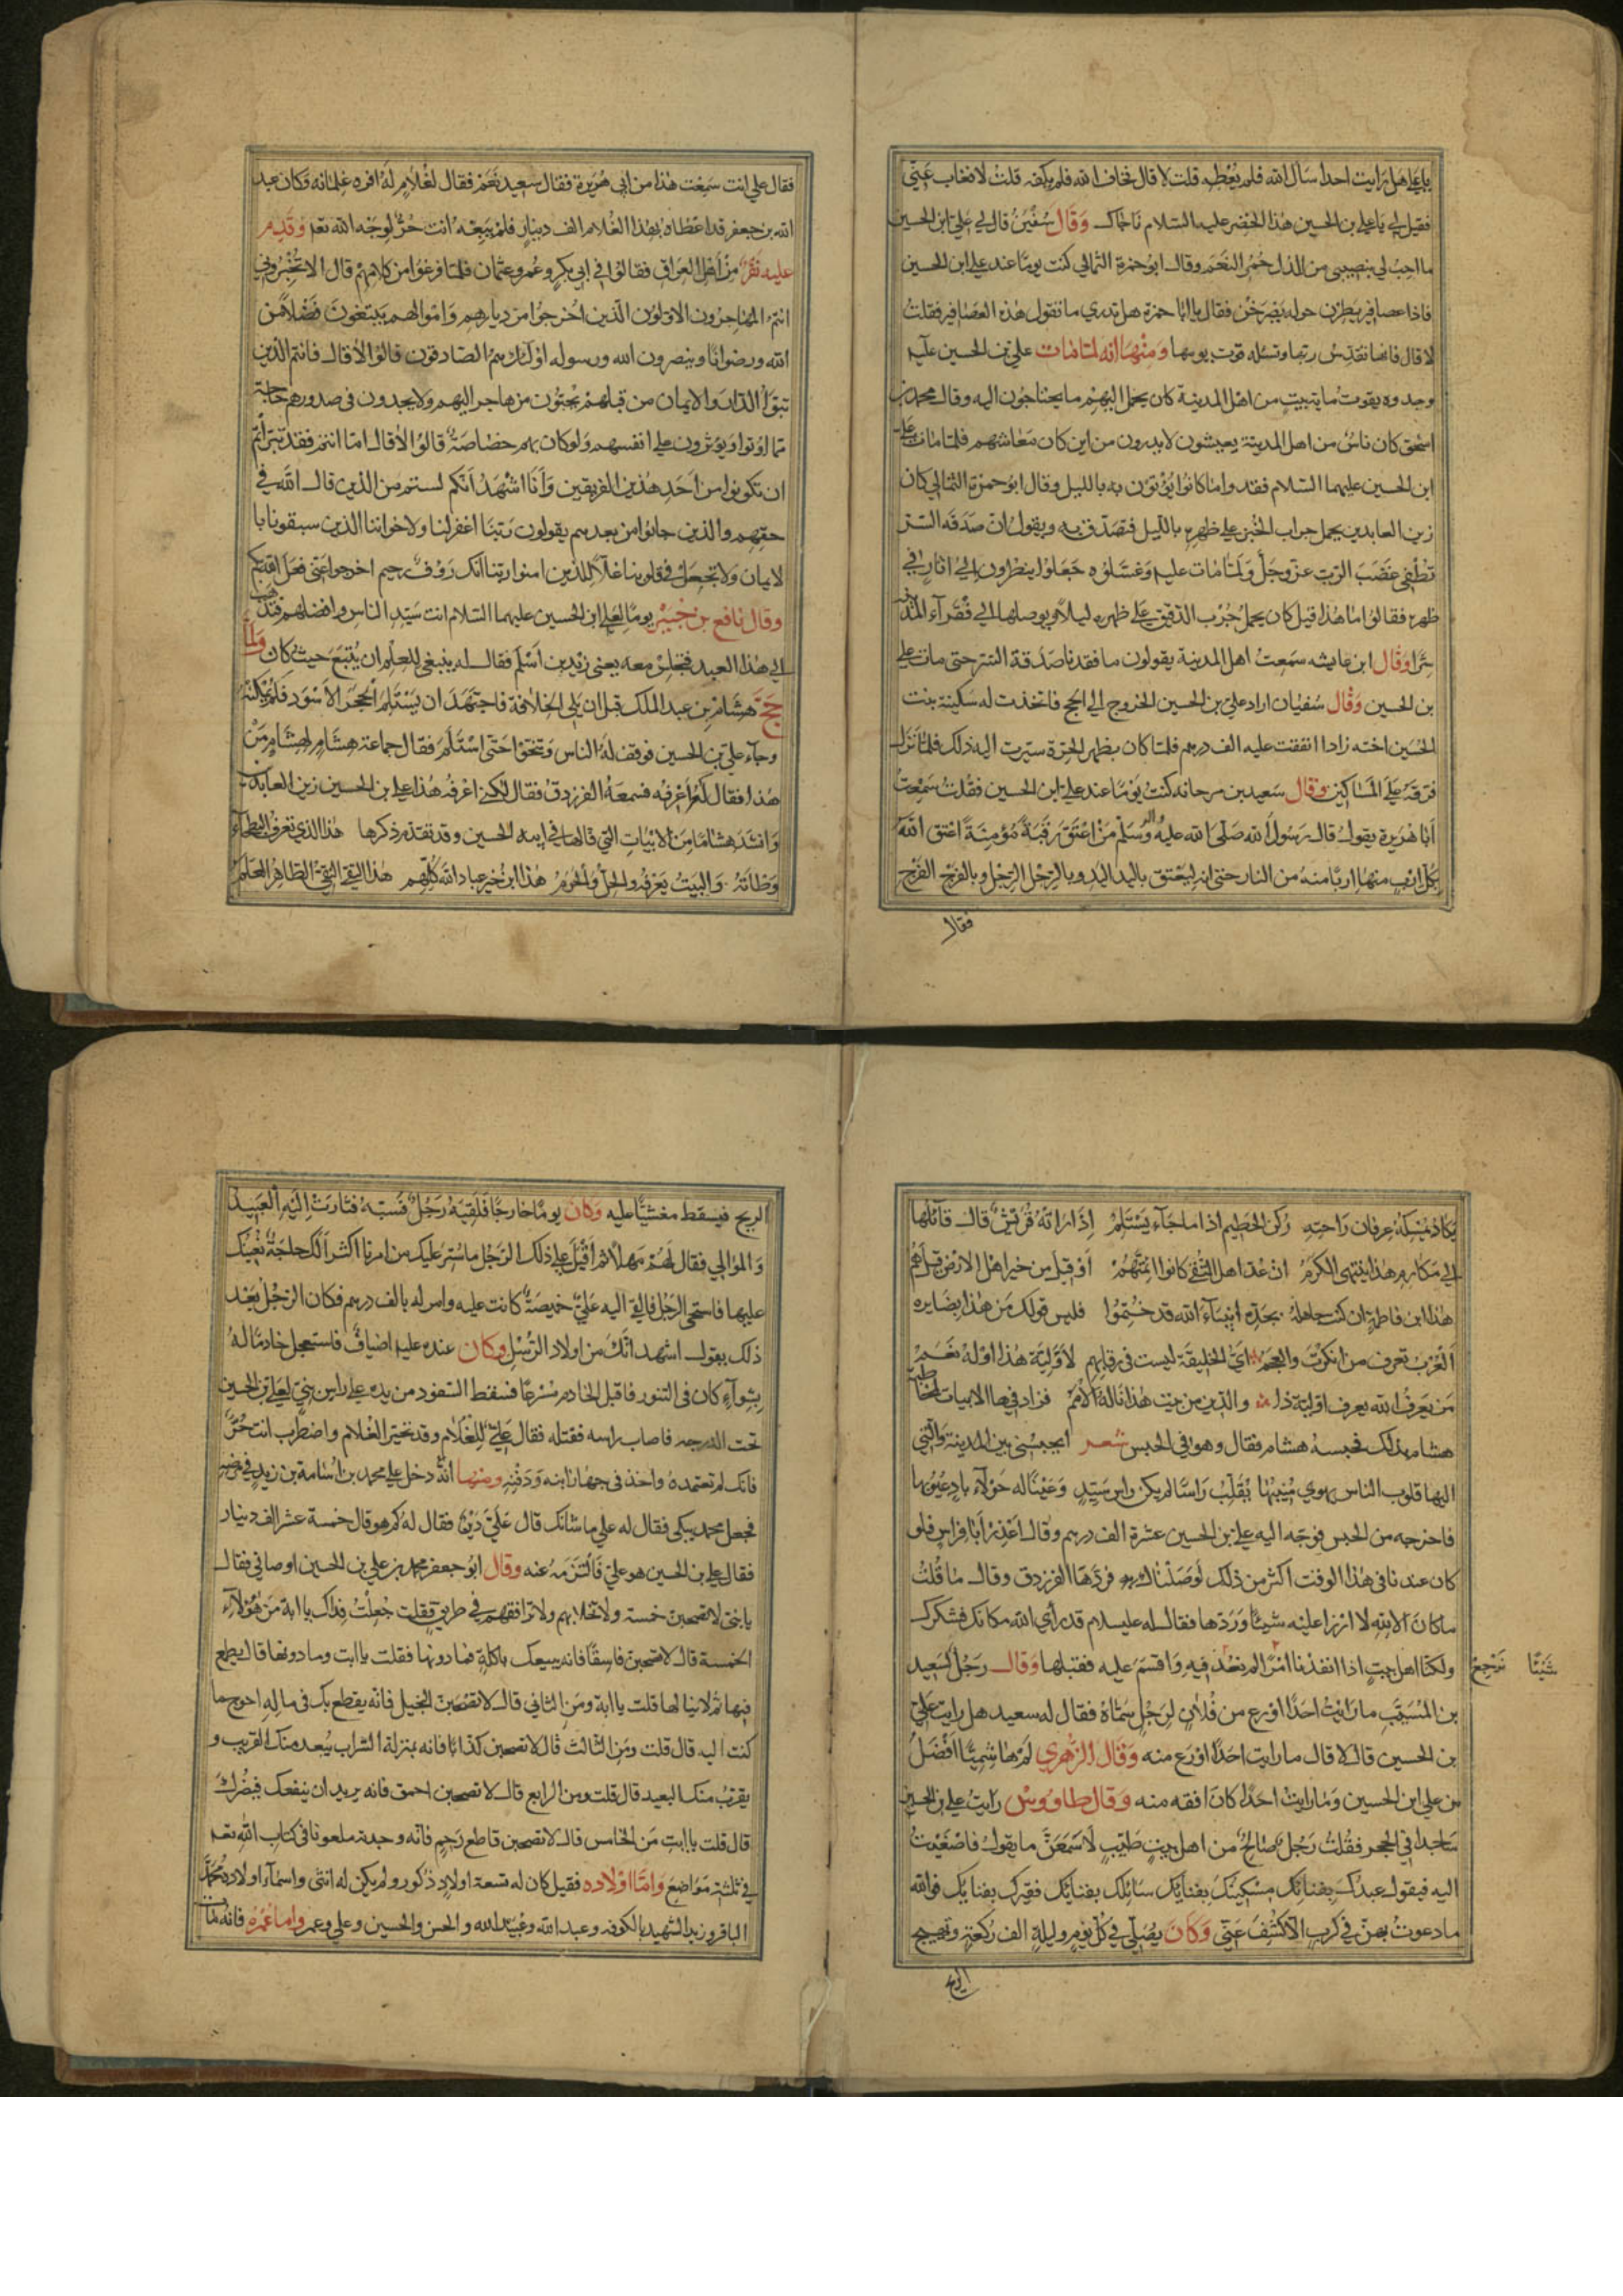 يا علي هل رايت احدا سال الله فلم يعطه قلت لا قال نخاف الله فلم يكفه قلت لا فغاب عنّي
فقيل لي يا علي بن الحسين هذا الخضر عليه السلام ناجاك وقال سفين قال لي علي ابن الحسين
ما احبّ لي بنصيبي من الذل حمر النعم وقال ابو حمزة الثمالي كنت يوما عند علي ابن الحسين
فاذا عصافير يطرن حوله يصرخن فقال يا ابا حمزة هل تدري ما تقول هذه العصافير فقلت
لا قال فانها تقدّس ربّها وتسئله قوت يومها ومنها انه لمّا مات علي بن الحسين عليه
وجدوه يقوت ماية بيت من اهل المدينة كان يحمل اليهم ما يحتاجون اليه وقال محمد بن
اسحق كان ناس من اهل المدينة يعيشون لا يدرون من اين كان معاشهم فلمّا مات علي
ابن الحسين عليهما السلام فقدوا ما كانوا يؤتون به بالليل وقال ابو حمزة الثمالي كان
زين العابدين يحمل جراب الخبز على ظهره بالليل فيتصدّق به ويقول انّ صدقة السّر
تطفي غضب الربّ عزّ وجلّ ولمّا مات عليه وغسلوه جعلوا ينظرون الى اثار في
ظهره فقالوا ما هذا قيل كان يحمل جرب الدقيق على ظهره ليلا ويوصلها الى فقراء المدينة
سرّا وقال ابن عايشه سمعت اهل المدينة يقولون ما فقدنا صدقة السّر حتى مات علي
بن الحسين وقال سفيان اراد علي بن الحسين الخروج الى الحج فاتخذت له سكينة بنت
الحسين اخته زادا انفقت عليه الف درهم فلمّا كان بظهر الحرّة سيّرت اليه ذلك فلمّا نزل
فرّقه على المساكين وقال سعيد بن مرجانه كنت يوما عند علي ابن الحسين فقلت سمعت
ابا هريرة يقول قال رسول الله صلى الله عليه واله وسلم من اعتق رقبة مؤمنة اعتق الله
بكل ارب منها اربا منه من النار حتى انه ليعتق باليد اليد وبالرجل الرجل وبالفرج الفرج
فقال
فقال علي انت سمعت هذا من ابي هريرة فقال سعيد نعم فقال لغلام له افره غلمانه وكان عبد
الله بن جعفر قد اعطاه بهذا الغلام الف دينار فلم يبعه انت حرّ لوجه الله تعه وقدم
عليه نفر من اهل العراق فقالوا في ابي بكر وعمر وعثمان فلمّا فرغوا من كلامهم قال الا تخبروني
انتم المهاجرون الاولون الذين اخرجوا من ديارهم واموالهم يبتغون فضلا من
الله ورضوانا وينصرون الله ورسوله اولئك هم الصادقون قالوا لا قال فانتم الذين
تبوّؤ الدار والايمان من قبلهم يحبّون من هاجر اليهم ولا يجدون في صدورهم حاجة
ممّا اوتوا ويؤثرون على انفسهم ولو كان بهم خصاصة قالوا لا قال امّا انتم فقد تبرأتم
ان تكونوا من احد هذين الفريقين وانا اشهد انّكم لستم من الذين قال الله في
حقّهم والذين جاؤا من بعدهم يقولون ربّنا اغفر لنا ولاخواننا الذين سبقونا با
لايمان ولا تجعل في قلوبنا غلّا للذين امنوا ربنا انك رؤف رحيم اخرجوا عنّي فعل الله بكم
وقال نافع بن جبير يوما لعلي ابن الحسين عليهما السلام انت سيّد الناس وافضلهم فتذهب
الى هذا العبد فتجلس معه يعني زيد بن اسلم فقال له ينبغي للعلم ان يتّبع حيث كان ولمّا
حجّ هشام بن عبد الملك قبل ان يلي الخلافة فاجتهد ان يستلم الحجر الاسود فلم يمكنه
وجاء علي بن الحسين فوقف له الناس وتنحّوا حتى استلم فقال جماعة هشام لهشام من
هذا فقال لا اعرفه فسمعه الفرزدق فقال لكنّي اعرفه هذا علي بن الحسين زين العابدين
وانشد هشاما من الابيات التي قالها في ابيه الحسين وقد تقدّم ذكرها هذا الذي تعرف البطحاء
وطاته والبيت يعرفه والحل والحرم هذا ابن خير عباد الله كلّهم هذا التقي النقي الطاهر العلم
يكاد يمسكه عرفان راحته ركن الحطيم اذا ما جاء يستلم اذا راته قريش قال قائلها
الى مكارم هذا ينتهي الكرم ان عدّ اهل التقى كانوا ائمّتهم او قيل من خير اهل الارض قيل هم
هذا ابن فاطمة ان كنت جاهله بجدّه انبياء الله قد ختموا فليس قولك من هذا بضايره
العرب تعرف من انكرت والعجم ايّ الخليقة ليست في رقابهم لاوّليّة هذا او له نعم
من يعرف الله يعرف اوليّة ذا والدين من بيت هذا ناله الامم فزاد فيها الابيات لمخاطبة
هشام بذلك فحبسه هشام فقال وهو في الحبس شعر ايحبسني بين المدينة والّتي
اليها قلوب الناس يهوي منيبها يقلّب راسا لم يكن راس سيّد وعينا له حولاء باد عيوبها
فاخرجه من الحبس فوجّه اليه علي بن الحسين عشرة الف درهم وقال اعذر ابا فراس فلو
كان عندنا في هذا الوقت اكثر من ذلك لوصلناك به فردّها الفرزدق وقال ما قلت
ما كان الا لله لا ازرا عليه شيئا وردّها فقال له عليه السلام قد راي الله مكانك فشكرك
ولكنّا اهل بيت اذا انفذنا امرا لم نعد فيه واقسم عليه فقبلها وقال رجل لسعيد
شيئا نرجع
بن المسيّب ما رايت احدا اورع من فلان لرجل سمّاه فقال له سعيد هل رايت علي
بن الحسين قال لا قال ما رايت احدا اورع منه وقال الزهري لم ار هاشميّا افضل
من علي ابن الحسين وما رايت احدا كان افقه منه وقال طاووس رايت علي بن الحسين
ساجدا في الحجر فقلت رجل صالح من اهل بيت طيّب لاسمعنّ ما يقول فاصغيت
اليه فيقول عبدك بفنائك مسكينك بفنائك سائلك بفنائك فقيرك بفنائك فوالله
ما دعوت بهنّ في كرب الا كشف عنّي وكان يصلّي في كلّ يوم وليلة الف ركعة وتهيج
الريح
الريح فيسقط مغشيّا عليه وكان يوما خارجا فلقيه رجل فسبّه فثارت اليه العبيد
والموالي فقال لهم مهلا ثم اقبل على ذلك الرجل ما ستر عليك من امرنا اكثر الك حاجة نعينك
عليها فاستحى الرجل فالقى اليه علي خميصة كانت عليه وامر له بالف درهم فكان الرجل بعد
ذلك يقول اشهد انّك من اولاد الرّسل وكان عنده عليه اضياف فاستعجل خادما له
بشواء كان في التنور فاقبل الخادم مسرعا فسقط السفود من يده على راس بنيّ لعلي بن الحسين
تحت الدرجه فاصاب راسه فقتله فقال علي للغلام وقد تحيّر الغلام واضطرب انت حرّ
فانك لم تعتمده واخذ في جهاز ابنه ودفنه ومنها انّه دخل على محمد بن اسامة بن زيد في مرضه
فجعل محمد يبكي فقال له علي ما شانك قال علي دين فقال له كم هو قال خمسة عشر الف دينار
فقال علي بن الحسين هو عليّ فالتزمه عنه وقال ابو جعفر محمد بن علي بن الحسين اوصاني فقال
يا بنيّ لا تصحبنّ خمسة ولا تحادثهم ولا ترافقهم في طريق فقلت جعلت فداك يا ابة من هؤلاء
الخمسة قال لا تصحبنّ فاسقا فانه يبيعك باكلة فما دونها فقلت يا ابت وما دونها قال يطمع
فيها ثم لا ينالها قلت يا ابة ومن الثاني قال لا تصحبنّ البخيل فانّه يقطع بك في ماله احوج ما
كنت اليه قال قلت ومن الثالث قال لا تصحبن كذابا فانه بمنزلة السراب يبعد منك القريب و
يقرّب منك البعيد قال قلت ومن الرابع قال لا تصحبن احمق فانه يريد ان ينفعك فيضرّك
قال قلت يا ابت من الخامس قال لا تصحبن قاطع رحم فانّه وجدته ملعونا في كتاب الله تعه
في ثلثة مواضع وامّا اولاده فقيل كان له تسعة اولاد ذكور ولم يكن له انثى واسماء اولاده محمّد
الباقر وزيد الشهيد بالكوفه وعبد الله وعبيد الله والحسن والحسين وعلي وعمر واما عمره فانه مات